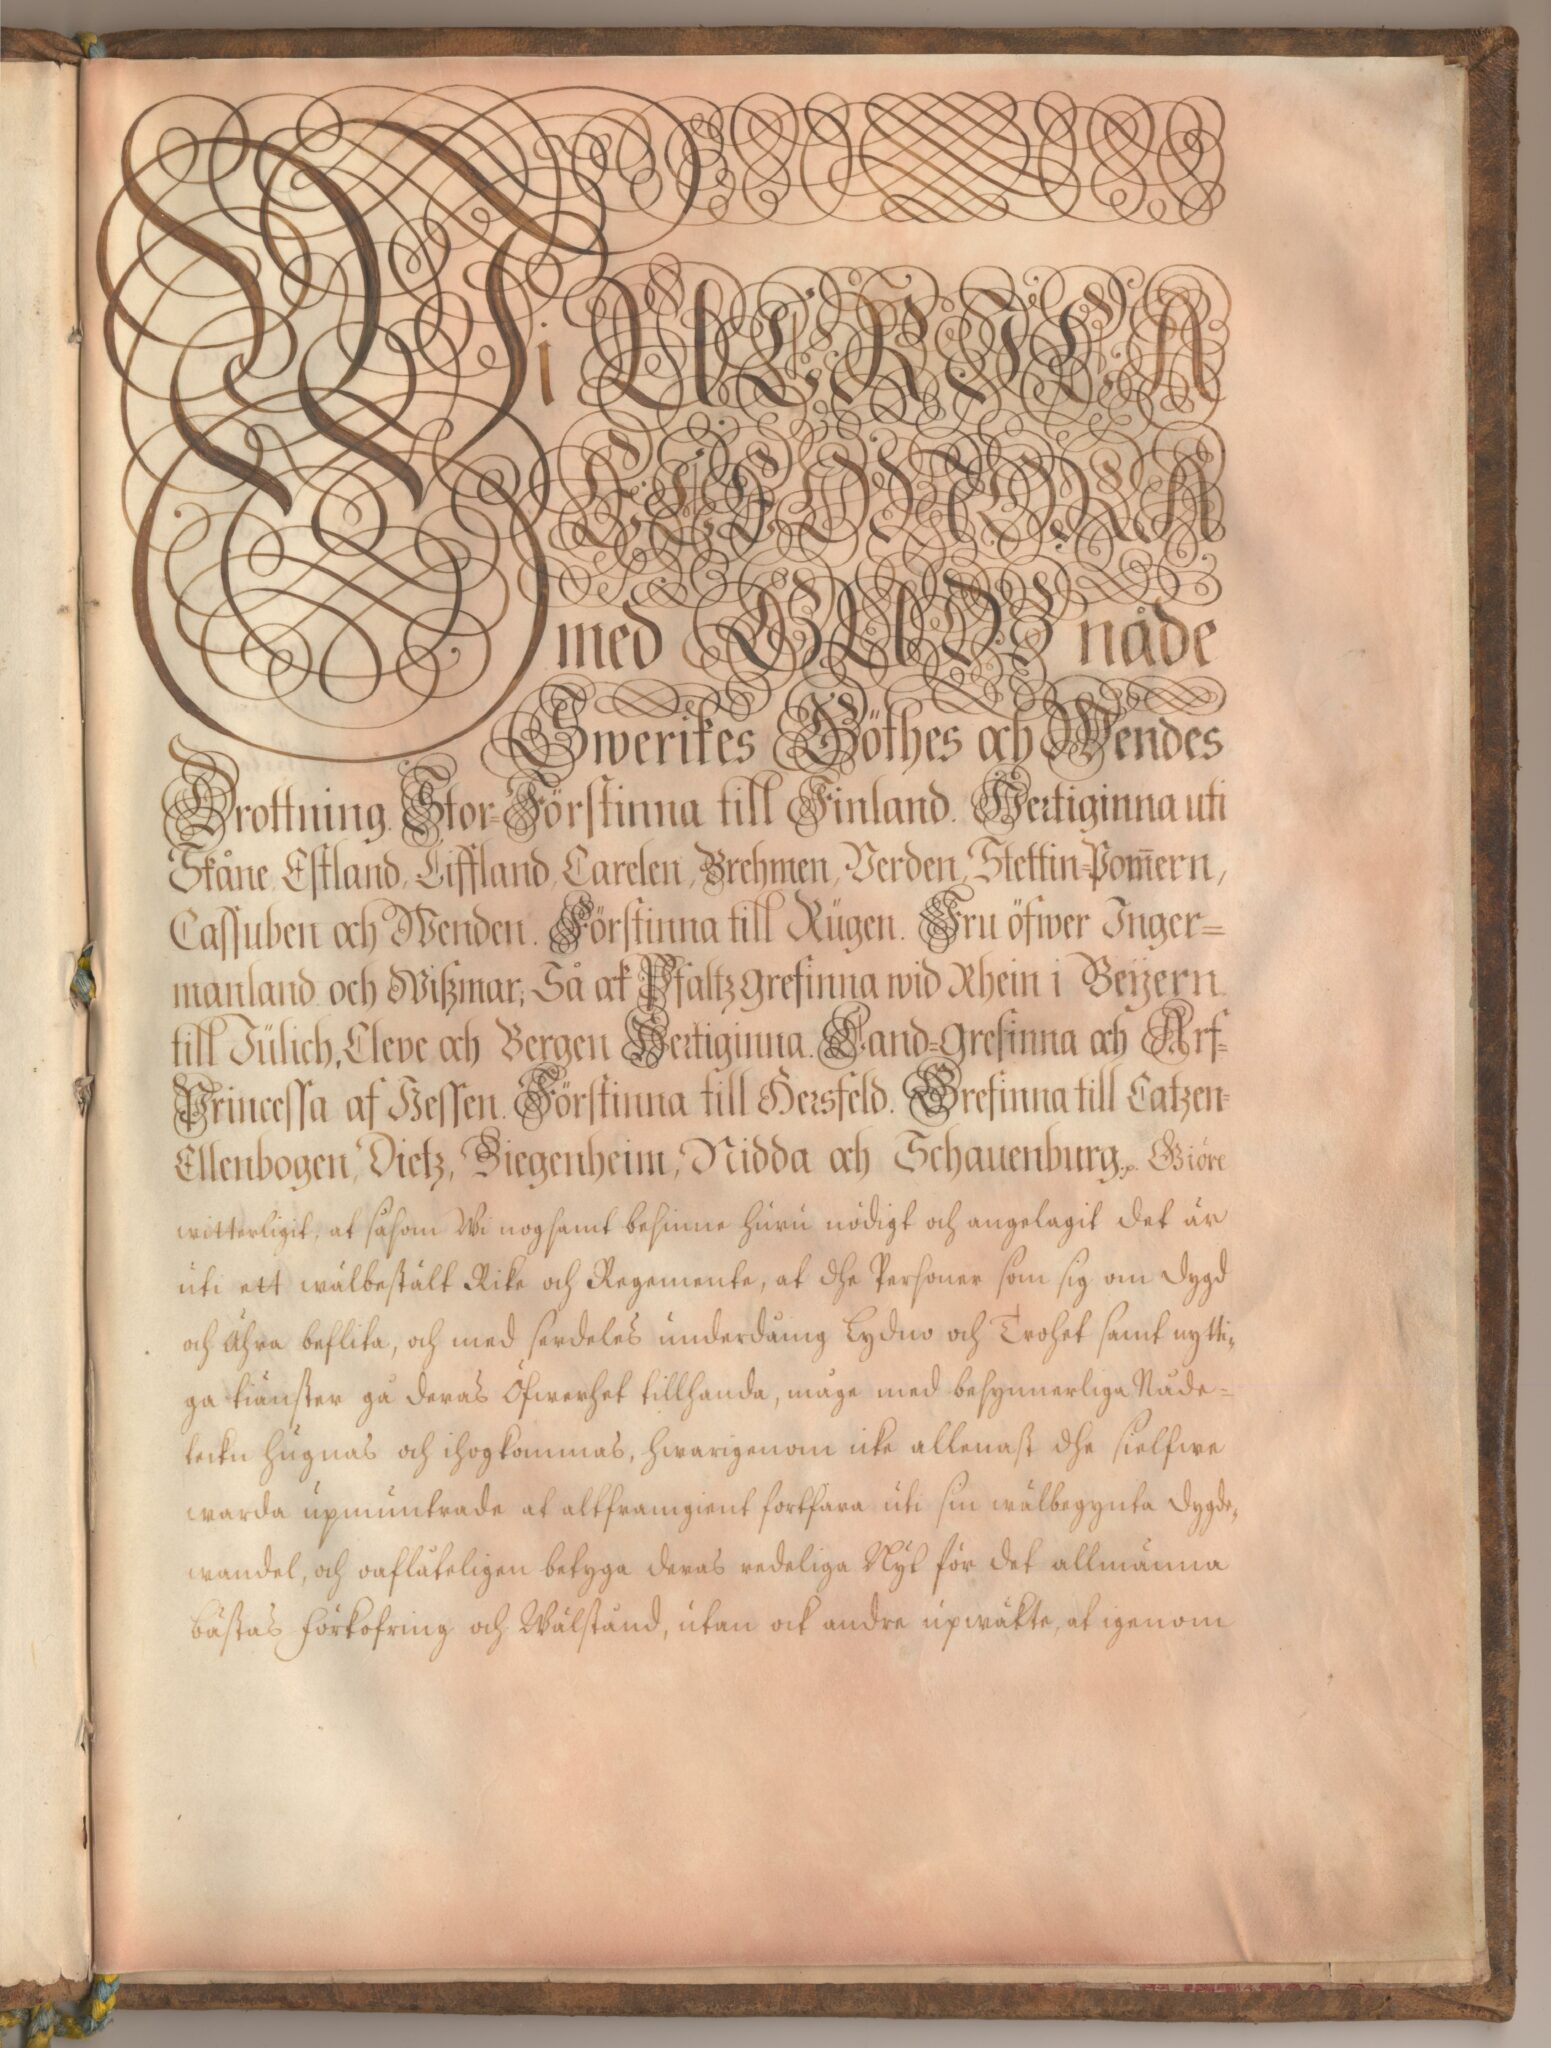 Wi ULRICA
ELEONORA
med GUDZ nåde
Swerikes Göthes och Wendes
Drottning. Stor-Förstinna till Finland. Hertiginna uti
Skåne, Estland, Liffland, Carelen, Brehmen, Verden, Stettin-Pom̄ern,
Cassuben och Wenden. Förstinna till Rügen. Fru öfwer Inger=
manland och Wißmar; Så ock Pfaltzgrefinna wid Rhein i Beijern
till Jülich, Cleve och Bergen Hertiginna. Land-grefinna och Arf-
Princessa af Hessen. Förstinna till Hersfeld. Grefinna till Catzen-
Ellenbogen, Dietz, Ziegenheim, Nidda och Schauenburg. Giöre
witterligit, at såsom Wi nogsamt besinne huru nödigt och angelägit det är
uti ett wälbestält Rike och Regemente, at dhe Personer som sig om dygd
och Ähra beflita, och med serdeles underdånig Lydno och Trohet samt nytti-
ga tiänster gå deras Öfwerhet tillhanda, måge med besynnerliga Nåde-
tecken hugnas och ihogkommas, hwarigenom icke allenast dhe sielfwe
warda upmuntrade at altframgient fortfara uti sin wälbegynta dygde-
wandel, och oaflåteligen betyga deras redeliga Nyt för det allmänna
bästas förkofring och Wälstånd, utan ock andre upwäkte, at igenom